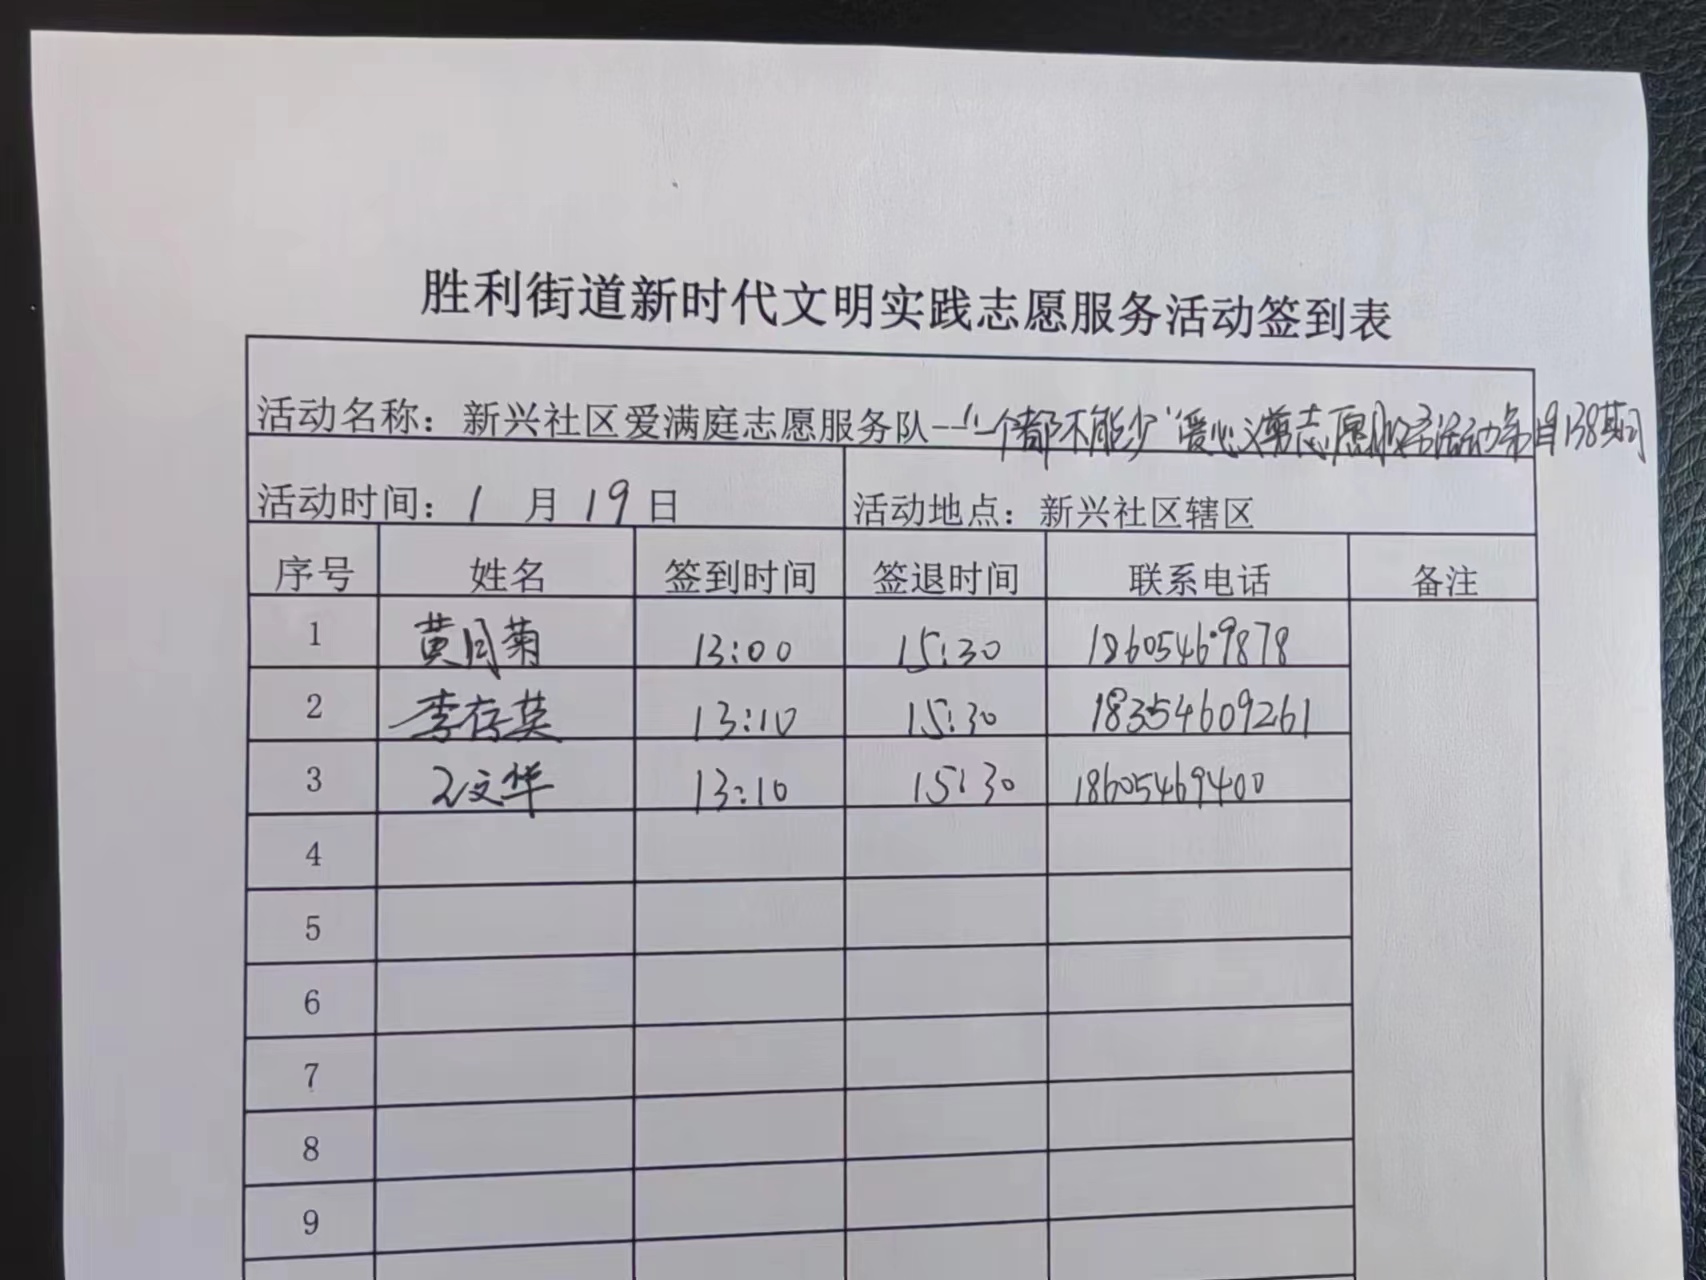 胜利街道新时代文明实践志愿服务活动签到表
活动名称：新兴社区爱满庭志愿服务队--“一个都不能少”爱心义剪志愿服务活动第138期
活动时间：1 月 19 日 活动地点：新兴社区辖区
序号 姓名 签到时间 签退时间 联系电话 备注
1 黄月菊 13:00 15:30 18605469878
2 李存英 13:10 15:30 18354609261
3 文华 13:10 15:30 18605469400
4
5
6
7
8
9